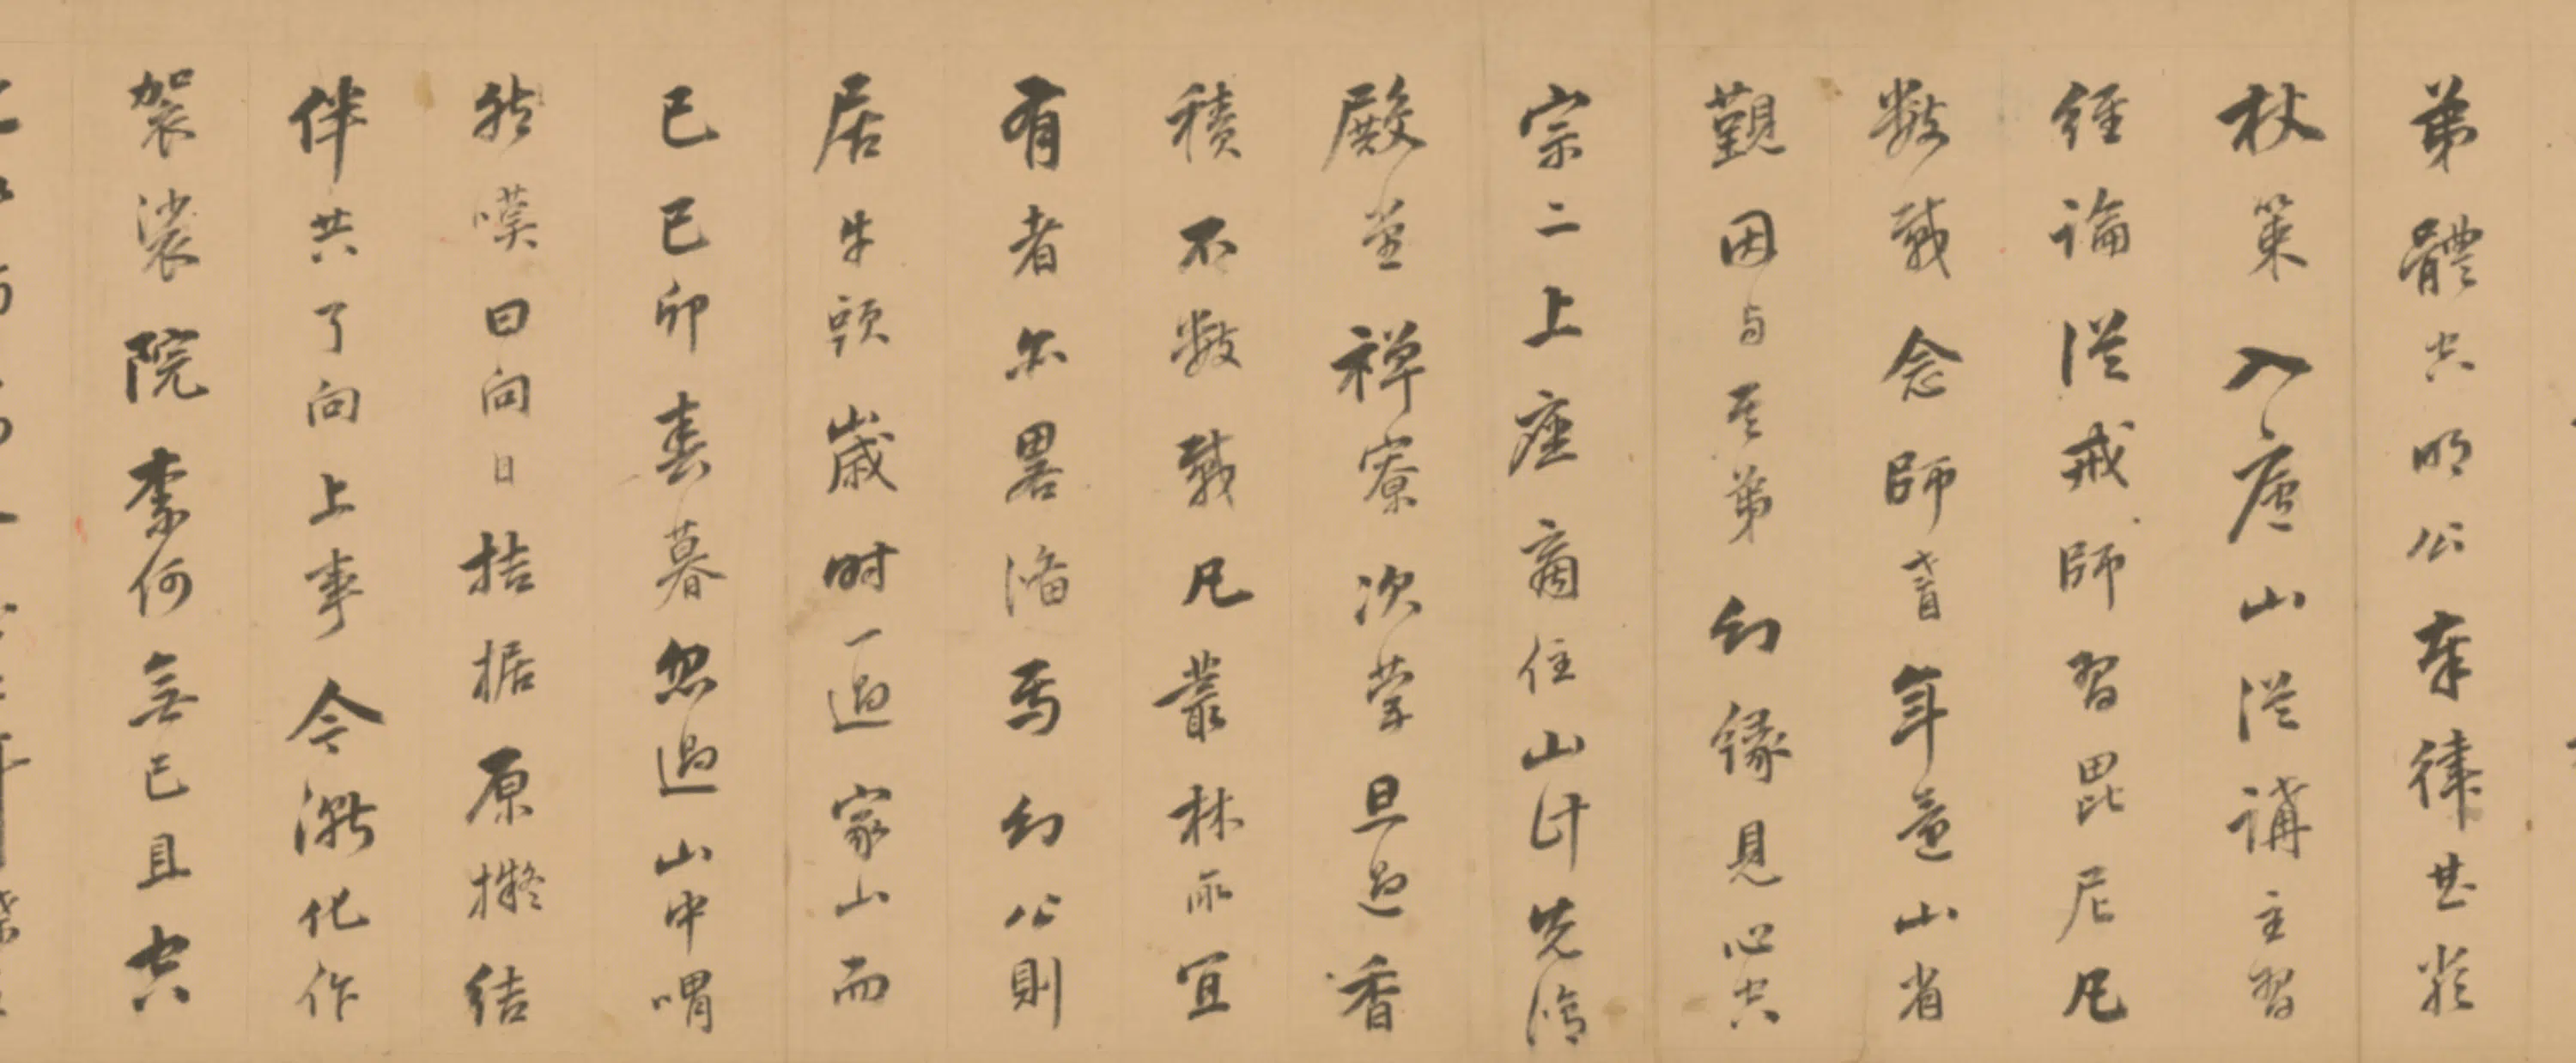 弟體空明公奉律甚嚴
杖策入廬山從講主習
經論從戒師習毘尼凡
數載念師耆年還山省
覲因与其弟幻緣見心空
宗二上座商住山計先後
殿堂禪寮次营旦過香
積不數載凡叢林所宜
有者尔畧俻焉幻公則
居牛頭歲時一過家山而
已己卯春暮忽過山中喟
然嘆曰向日拮据原擬結
伴共了向上事今漸化作
袈裟院柰何無已且空